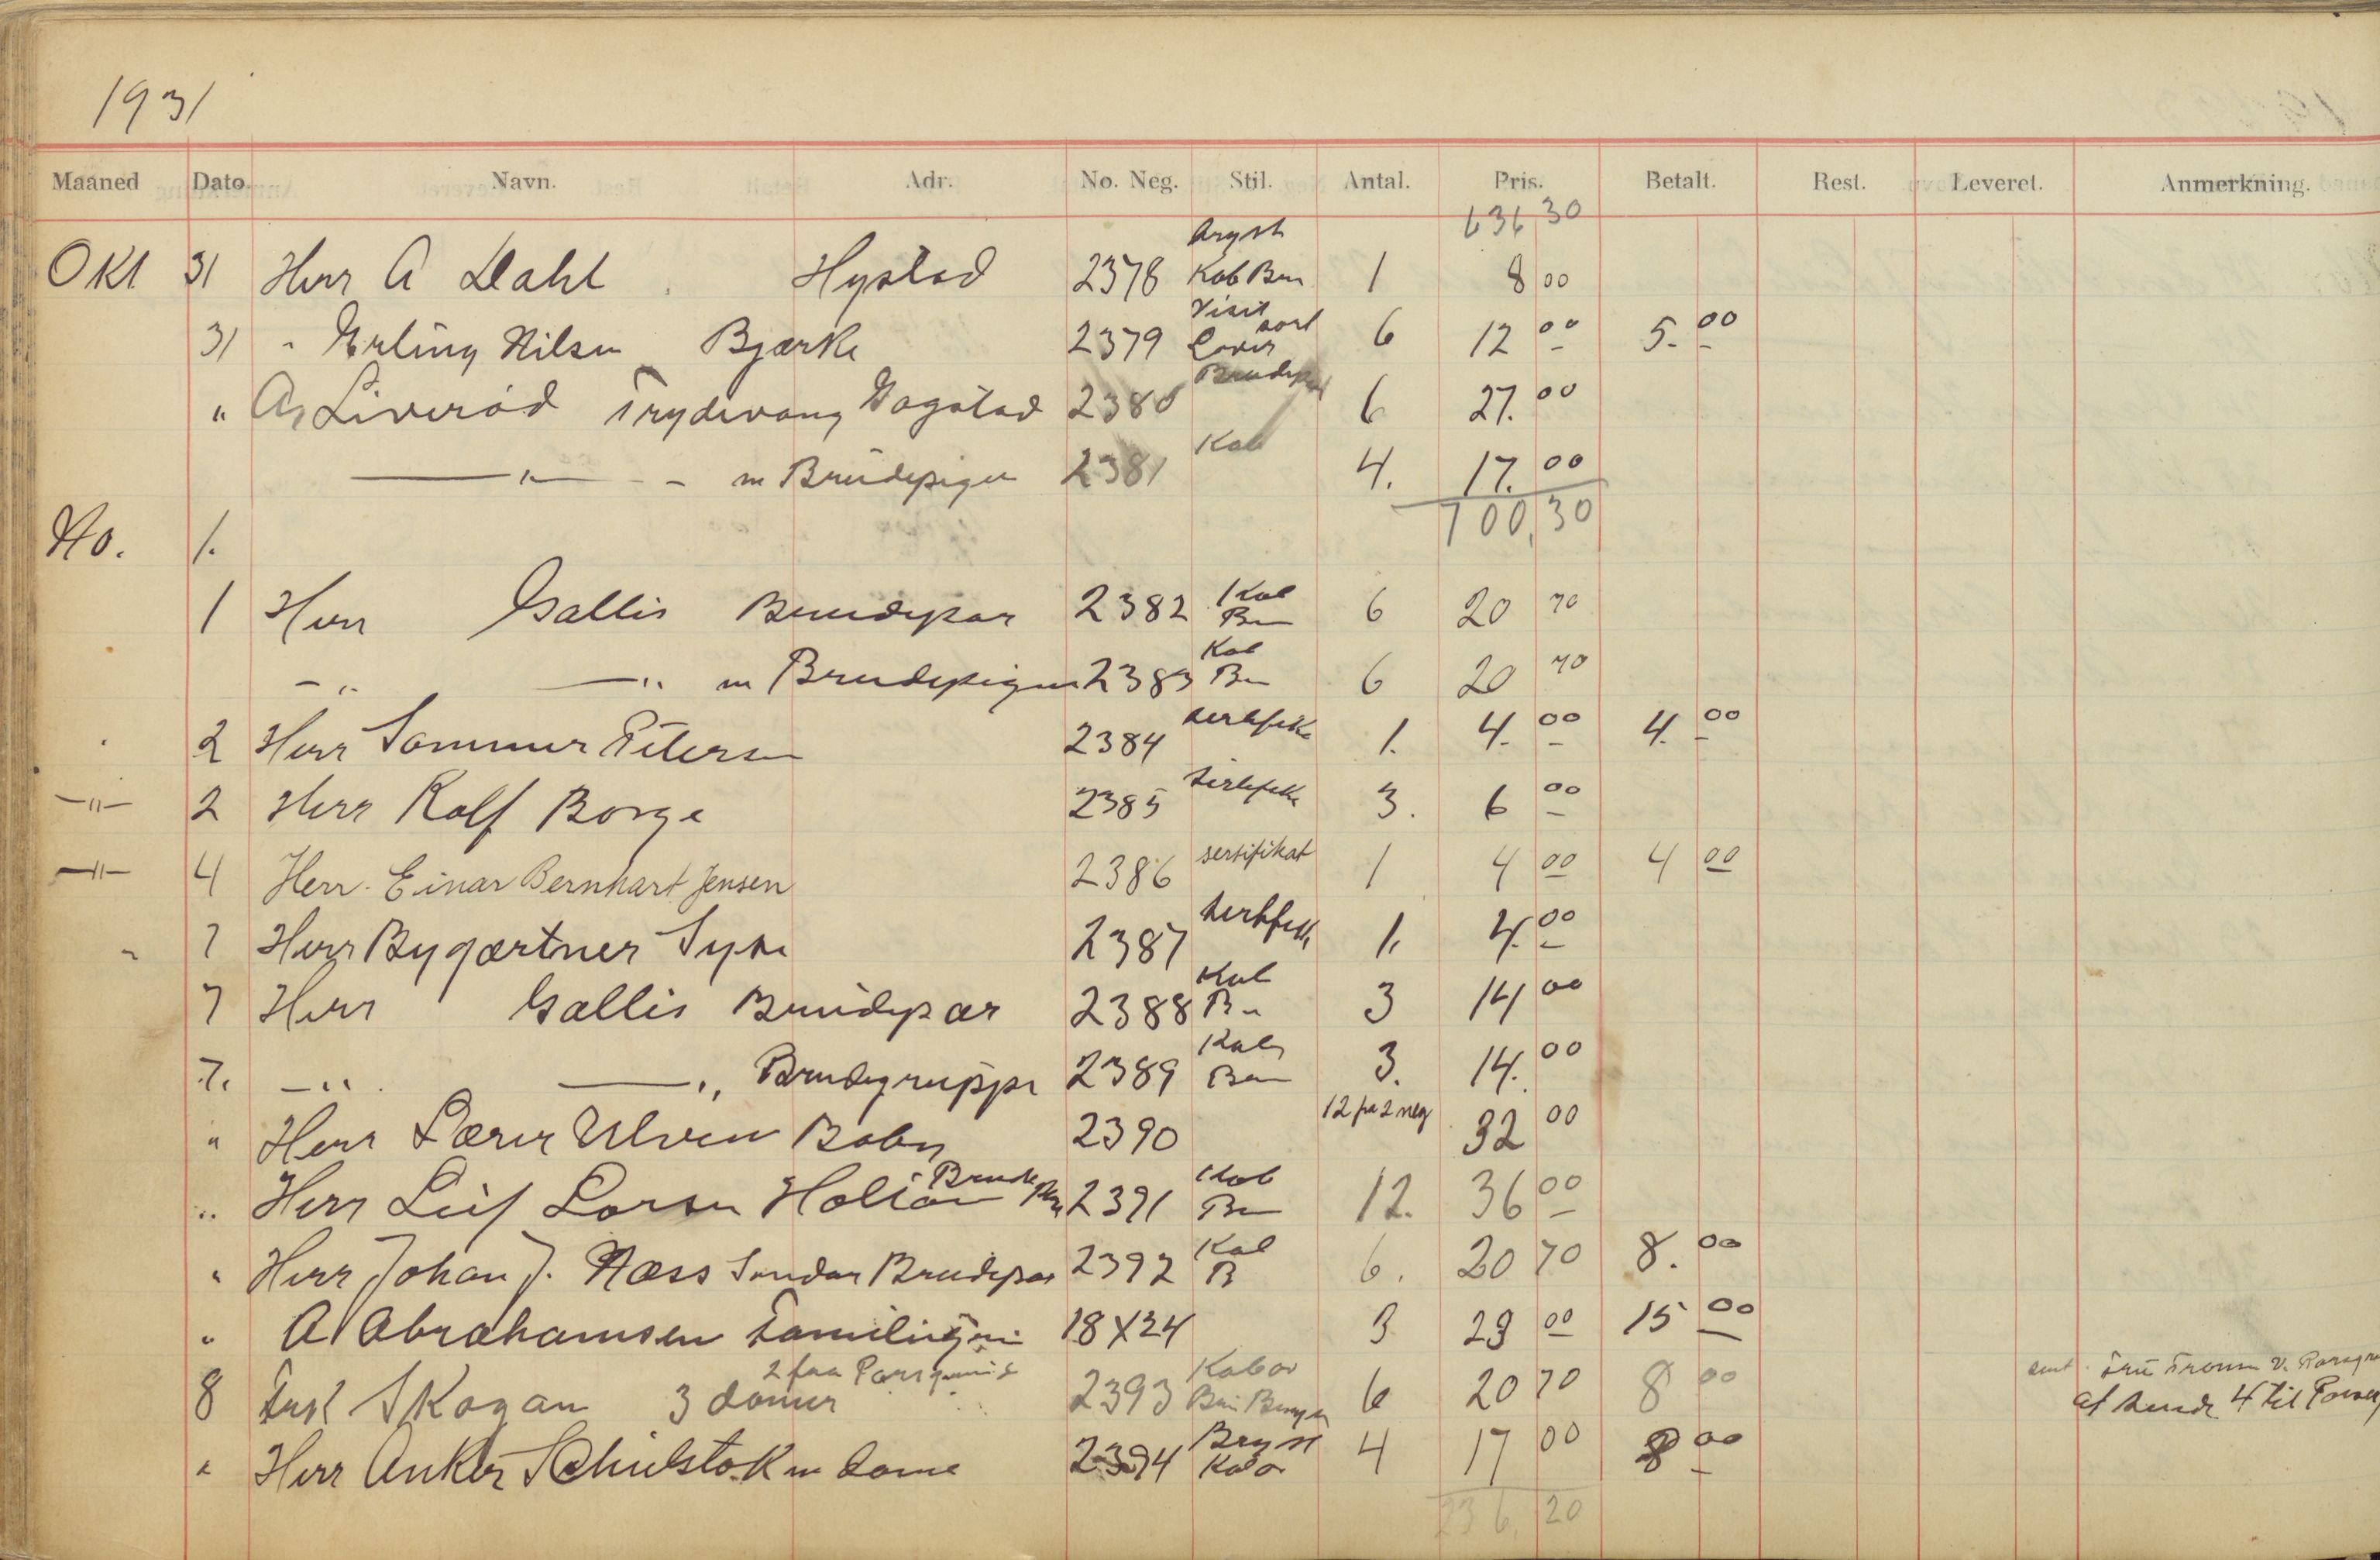 1931
Maaned Dato. Navn. Adr. No. Neg. Stil. Antal. Pris. Betalt. Rest. Leveret. Anmerkning.
636 30
Okt 31 Herr A Dahl Hystad 2378 Bryst Kab Brun 1 8 00
31 - Erling Nilsen Bjærke 2379 Visit sort 6 12 00 5.00
" Liverød Frydevang Gogstad 2380 Brudepar 6 27.00
—"— - - m Brudepiger 2381 Kab 4. 17.00
700,30
No. 1.
1 Herr Gallis Brudepar 2382 Kab Br 6 20 70
-" —" m Brudepigen 2383 Kab Br 6 20 70
2 Herr Sommer Petersen 2384 sertifika 1. 4.00 4.00
—"— 2 Herr Rolf Borge 2385 sertifika 3. 6 00
—"— 4 Herr. Einar Bernhart Jensen 2386 sertifikat 1 4 00 4 00
" 7 Herr Bygartner 2387 1. 4.00
7 Herr Gallis Brudepar 2388 Kab Br 3 14 00
7. —" —", Brudegruppe 2389 Kab Brun 3. 14.00
" Herr Lærer Ulven Baby 2390 12 på 2 neg 32 00
" Herr Leif Larsen Brudepar 2391 Kab Br 12. 36 00
" Herr Johan J. Næss Sandar Brudepar 2392 Kab B 6. 20 70 8.00
" A Abrahamsen 18X24 3 29 00 15 00
8 Frk Skogan 3 damer 2 faa 2393 6 20 70 8 00 sent Fru
af hende 4 til
" Herr Anker m dame 2394 Bryst Kab 4 17 00 8 00
236,20